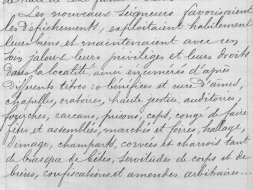 Les nouveaux seigneurs favorisaient
les défrichements, exploitaient habilement
leurs biens et maintenaient avec un
soin jaloux leurs privilèges et leurs droits
dans la localité ainsi énumérés d'après
différents titres : bénéfices et cure d'âmes,
chapelles, oratoires, haute justice, auditoires,
fourches, carcans, prisons, ceps, congé de faire
fêtes et assemblées, marchés et foires, hallage,
dimage, champarts, corvées et charrois tant
de bras que de bêtes, servitudes de corps et de
biens, confiscations et amendes arbitraires...